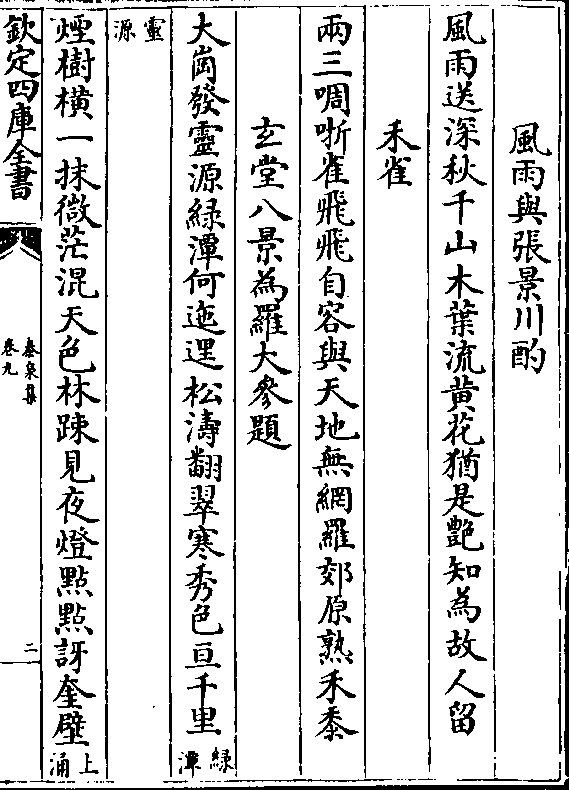 風雨與張景川酌
風雨送深秋千山木葉流黄花猶是艷知為故人留
禾雀
兩三啁哳雀飛飛自容與天地無網羅郊原熟禾黍
玄堂八景為羅大參題
大崗發靈源緑潭何迤邐松濤翻翠寒秀色亘千里緑潭
靈源
煙樹橫一抹微茫混天色林踈見夜燈點點訝奎壁上涌
欽定四庫全書
泰泉集
卷九
二